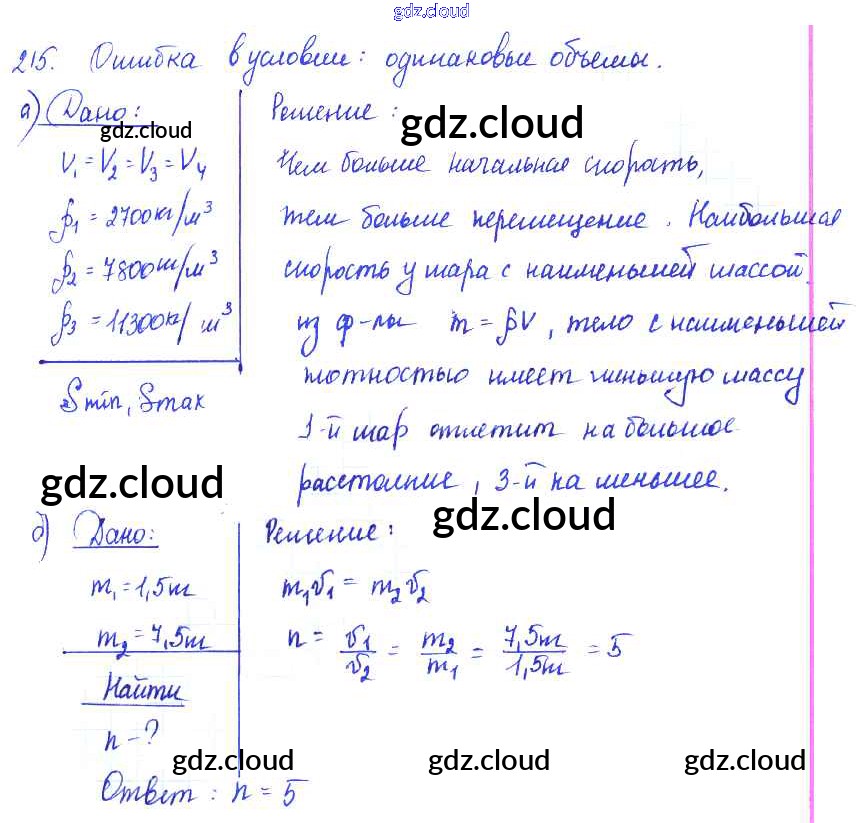 gdz.cloud
215. Ошибка в условии: одинаковые объемы.
а) Дано:
V₁ = V₂ = V₃ = V₄
ρ₁ = 2700 кг/м³
ρ₂ = 7800 кг/м³
ρ₃ = 11300 кг/м³
Smin, Smax
Решение:
Чем больше начальная скорость,
тем больше перемещение. Наибольшая
скорость у шара с наименьшей массой.
из ф-лы m = ρV, тело с наименьшей
плотностью имеет меньшую массу
1-й шар отлетит на большое
расстояние, 3-й на меньшее.
gdz.cloud
gdz.cloud
gdz.cloud
gdz.cloud
б) Дано:
m₁ = 1,5т
m₂ = 7,5т
Найти
n - ?
Решение:
m₁v₁ = m₂v₂
n = v₁/v₂ = m₂/m₁ = 7,5т/1,5т = 5
gdz.cloud
gdz.cloud
gdz.cloud
Ответ: n = 5